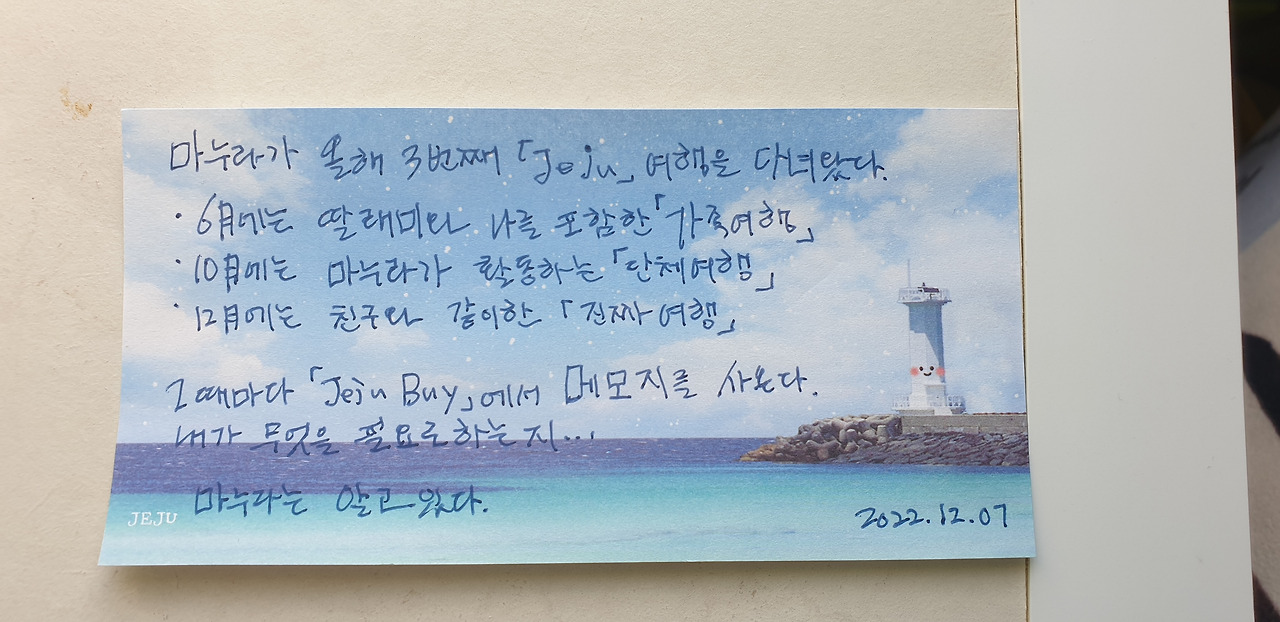 마누라가 올해 3번째 「Jeju」 여행을 다녀왔다.
· 6月에는 딸래미와 나를 포함한 「가족여행」
· 10月에는 마누라가 활동하는 「단체여행」
· 12月에는 친구와 같이한 「진짜여행」
그때마다 「Jeju Buy」에서 메모지를 사온다.
내가 무엇을 필요로 하는지...
마누라는 알고있다.
JEJU
2022.12.07